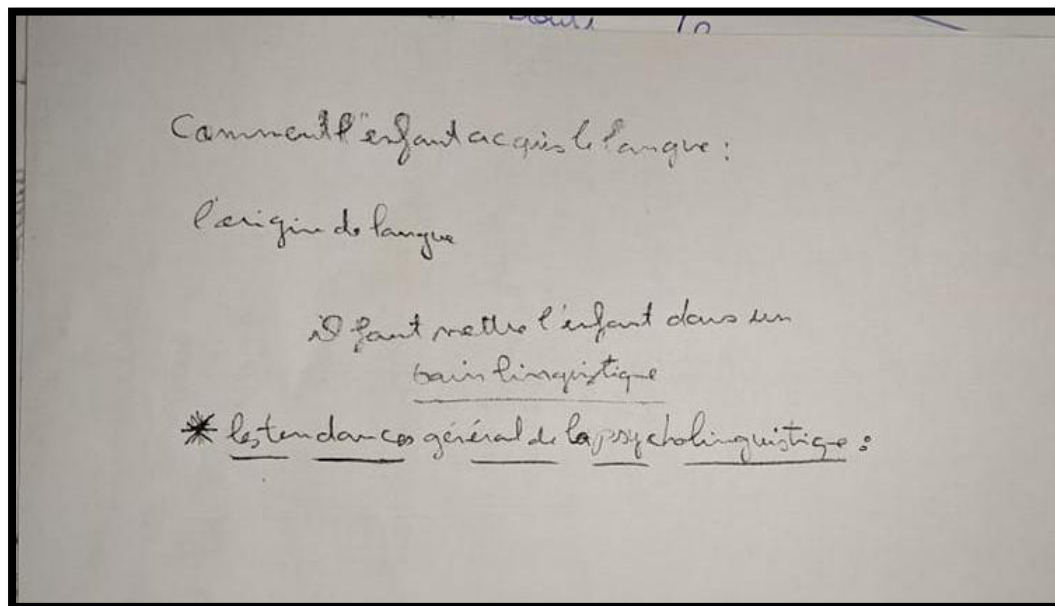 Comment l'enfant acquis le langue :
l'origin de langue
il faut mettre l'enfant dans un
bain linguistique
* les tendances général de la psycholinguistique :